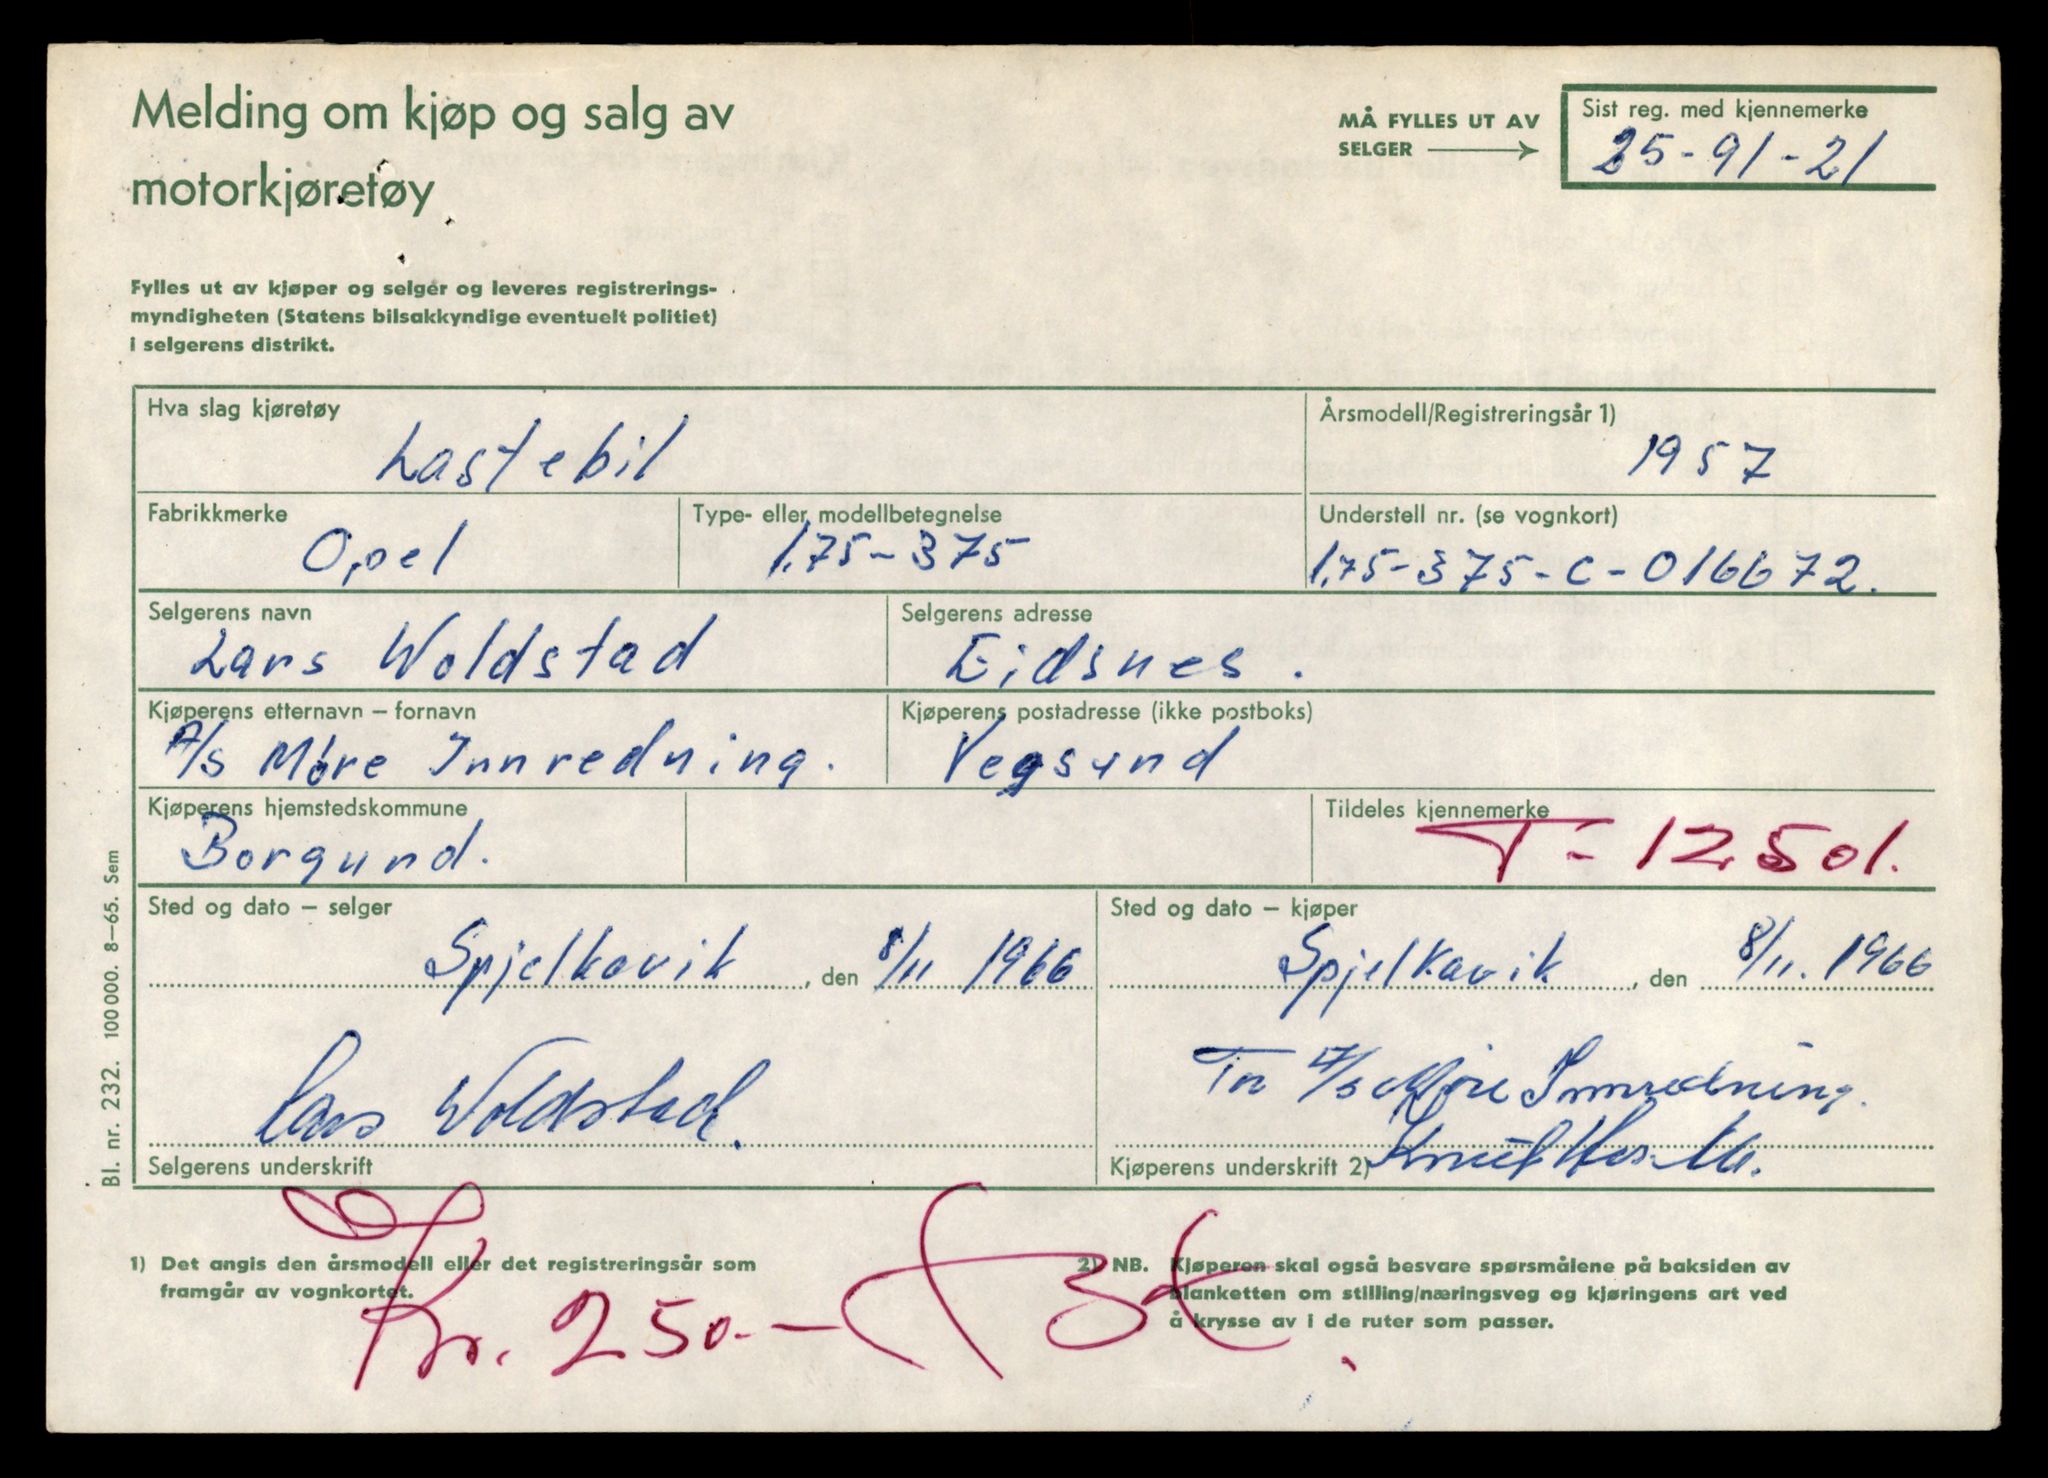 Melding om kjøp og salg av
motorkjøretøy
MÅ FYLLES UT AV
SELGER
Sist reg. med kjennemerke
25-91-21
Fylles ut av kjøper og selger og leveres registrerings-
myndigheten (Statens bilsakkyndige eventuelt politiet)
i selgerens distrikt.
Hva slag kjøretøy
Lastebil
Årsmodell/Registreringsår 1)
1957
Fabrikkmerke
Opel
Type- eller modellbetegnelse
1,75-375
Understell nr. (se vognkort)
1,75-375-C-016672.
Selgerens navn
Lars Woldstad
Selgerens adresse
Eidsnes.
Kjøperens etternavn – fornavn
A/S Møre Innredning.
Kjøperens postadresse (ikke postboks)
Vegsund
Kjøperens hjemstedskommune
Borgund.
Tildeles kjennemerke
T-12501.
Sted og dato – selger
Spjelkavik, den 8/11 1966
Sted og dato – kjøper
Spjelkavik, den 8/11. 1966
Lars Woldstad.
Selgerens underskrift
A/S Møre Innredning.
Knut
Kjøperens underskrift 2)
Kr. 250.-
1) Det angis den årsmodell eller det registreringsår som
framgår av vognkortet.
2) NB. Kjøperen skal også besvare spørsmålene på baksiden av
blanketten om stilling/næringsveg og kjøringens art ved
å krysse av i de ruter som passer.
Bl. nr. 232. 100000. 8–65. Sem